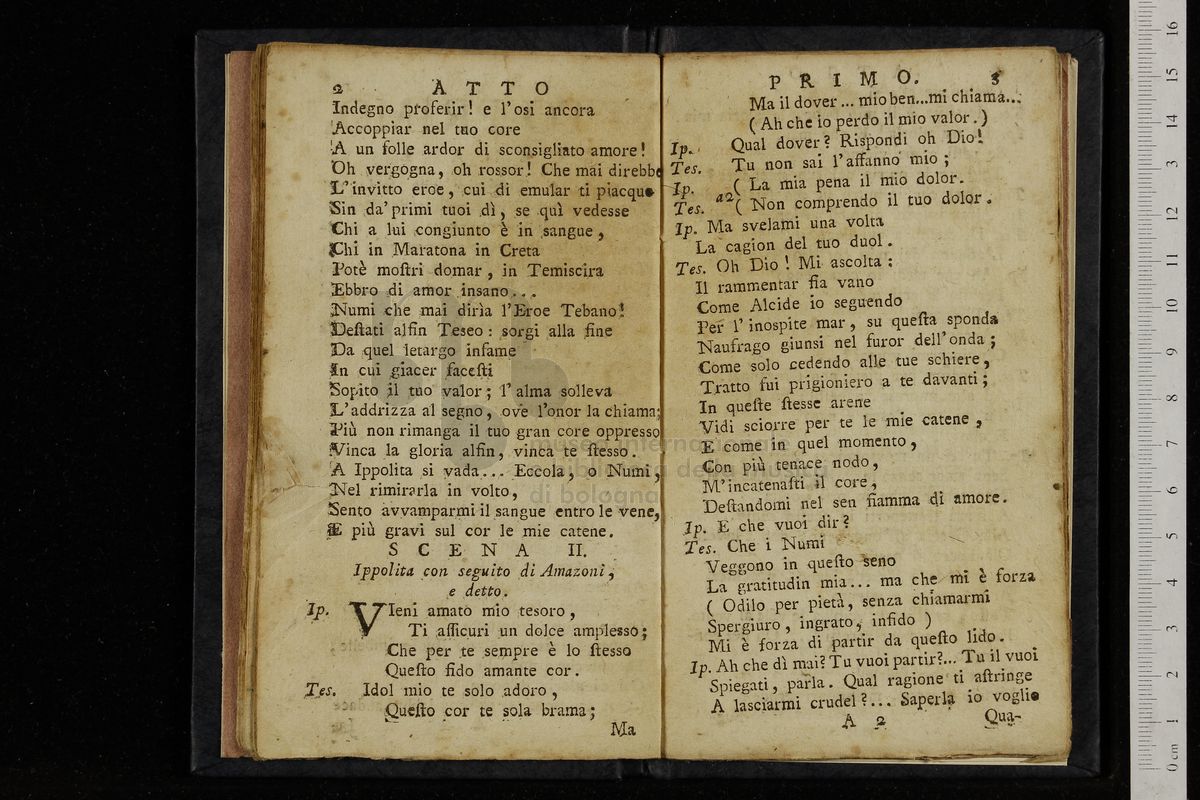 2 ATTO
Indegno proferir! e l'osi ancora
Accoppiar nel tuo core
A un folle ardor di sconsigliato amore!
Oh vergogna, oh rossor! Che mai direbbe
L'invitto eroe, cui di emular ti piacque
Sin da' primi tuoi dì, se quì vedesse
Chi a lui congiunto è in sangue,
Chi in Maratona in Creta
Potè moſtri domar, in Temiscira
Ebbro di amor insano...
Numi che mai dirìa l'Eroe Tebano!
Deſtati alfin Teseo: sorgi alla fine
Da quel letargo infame
In cui giacer faceſti
Sopito il tuo valor; l'alma solleva
L'addrizza al segno, ove l'onor la chiama;
Più non rimanga il tuo gran core oppresso
Vinca la gloria alfin, vinca te ſtesso.
A Ippolita si vada... Eccola, o Numi,
Nel rimirarla in volto,
Sento avvamparmi il sangue entro le vene,
E più gravi sul cor le mie catene.
SCENA II.
Ippolita con seguito di Amazoni,
e detto.
Ip. VIeni amato mio tesoro,
Ti aſſicuri un dolce amplesso;
Che per te sempre è lo ſtesso
Queſto fido amante cor.
Tes. Idol mio te solo adoro,
Queſto cor te sola brama;
Ma
PRIMO. 3
Ma il dover... mio ben...mi chiama...
(Ah che io perdo il mio valor.)
Ip. Qual dover? Rispondi oh Dio!
Tes. Tu non sai l'affanno mio;
Ip. ( La mia pena il mio dolor.
Tes. a2 ( Non comprendo il tuo dolor.
Ip. Ma svelami una volta
La cagion del tuo duol.
Tes. Oh Dio! Mi ascolta:
Il rammentar fia vano
Come Alcide io seguendo
Per l'inospite mar, su queſta sponda
Naufrago giunsi nel furor dell'onda;
Come solo cedendo alle tue schiere,
Tratto fui prigioniero a te davanti;
In queſte ſtesse arene
Vidi sciorre per te le mie catene,
E come in quel momento,
Con più tenace nodo,
M'incatenaſti il core,
Deſtandomi nel sen fiamma di amore.
Ip. E che vuoi dir?
Tes. Che i Numi
Veggono in queſto seno
La gratitudin mia... ma che mi è forza
( Odilo per pietà, senza chiamarmi
Spergiuro, ingrato, infido )
Mi è forza di partir da queſto lido.
Ip. Ah che dì mai? Tu vuoi partir?... Tu il vuoi
Spiegati, parla. Qual ragione ti aſtringe
A lasciarmi crudel?... Saperla io voglio
A 2 Qua-
museo internazionale
e biblioteca della musica
di bologna
0 cm 1 2 3 4 5 6 7 8 9 10 11 12 3 14 15 16